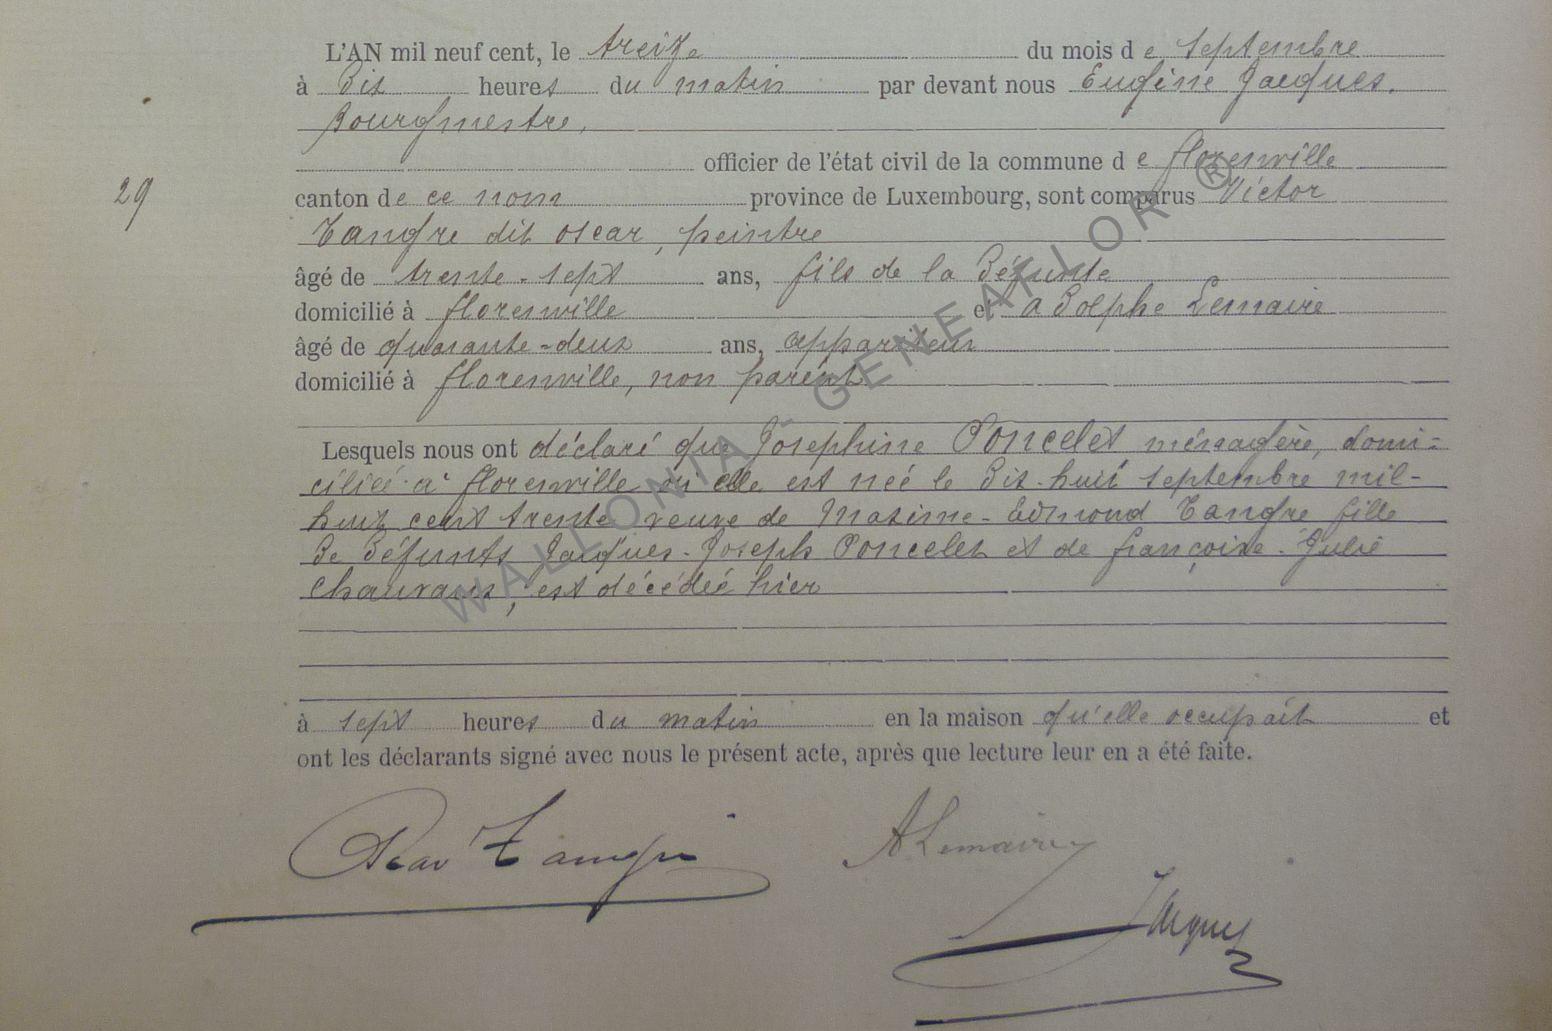 L'AN mil neuf cent, le treize du mois de septembre
à Dix heures du matin par devant nous Eugène Jacques,
Bourgmestre,
officier de l'état civil de la commune de florenville
29
canton de ce nom province de Luxembourg, sont comparus Victor
Tangre dit oscar, peintre
âgé de trente-sept ans, fils de la Défunte
domicilié à florenville et aDolphe Lemaire
âgé de quarante-deux ans, appariteur
domicilié à florenville, non parent
Lesquels nous ont déclaré que Josephine Poncelet ménagère, domi-
ciliée à florenville où elle est née le Dix-huit septembre mil-
huit cent trente veuve de Maxime-Edmond Tangre fille
De Défunts Jacques-Joseph Poncelet et de françoise-Julie
Chauvaux, est décédée hier
à sept heures du matin en la maison qu'elle occupait et
ont les déclarants signé avec nous le présent acte, après que lecture leur en a été faite.
Oscar Tangre
A Lemaire
Jacques
WALLONIA - GENEAFLOR ®